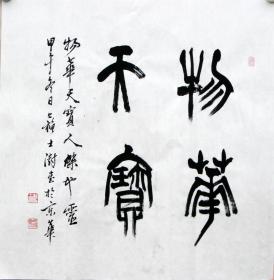 物華
天寶
物華天寶人傑地靈
甲午冬日 士澍書於京華